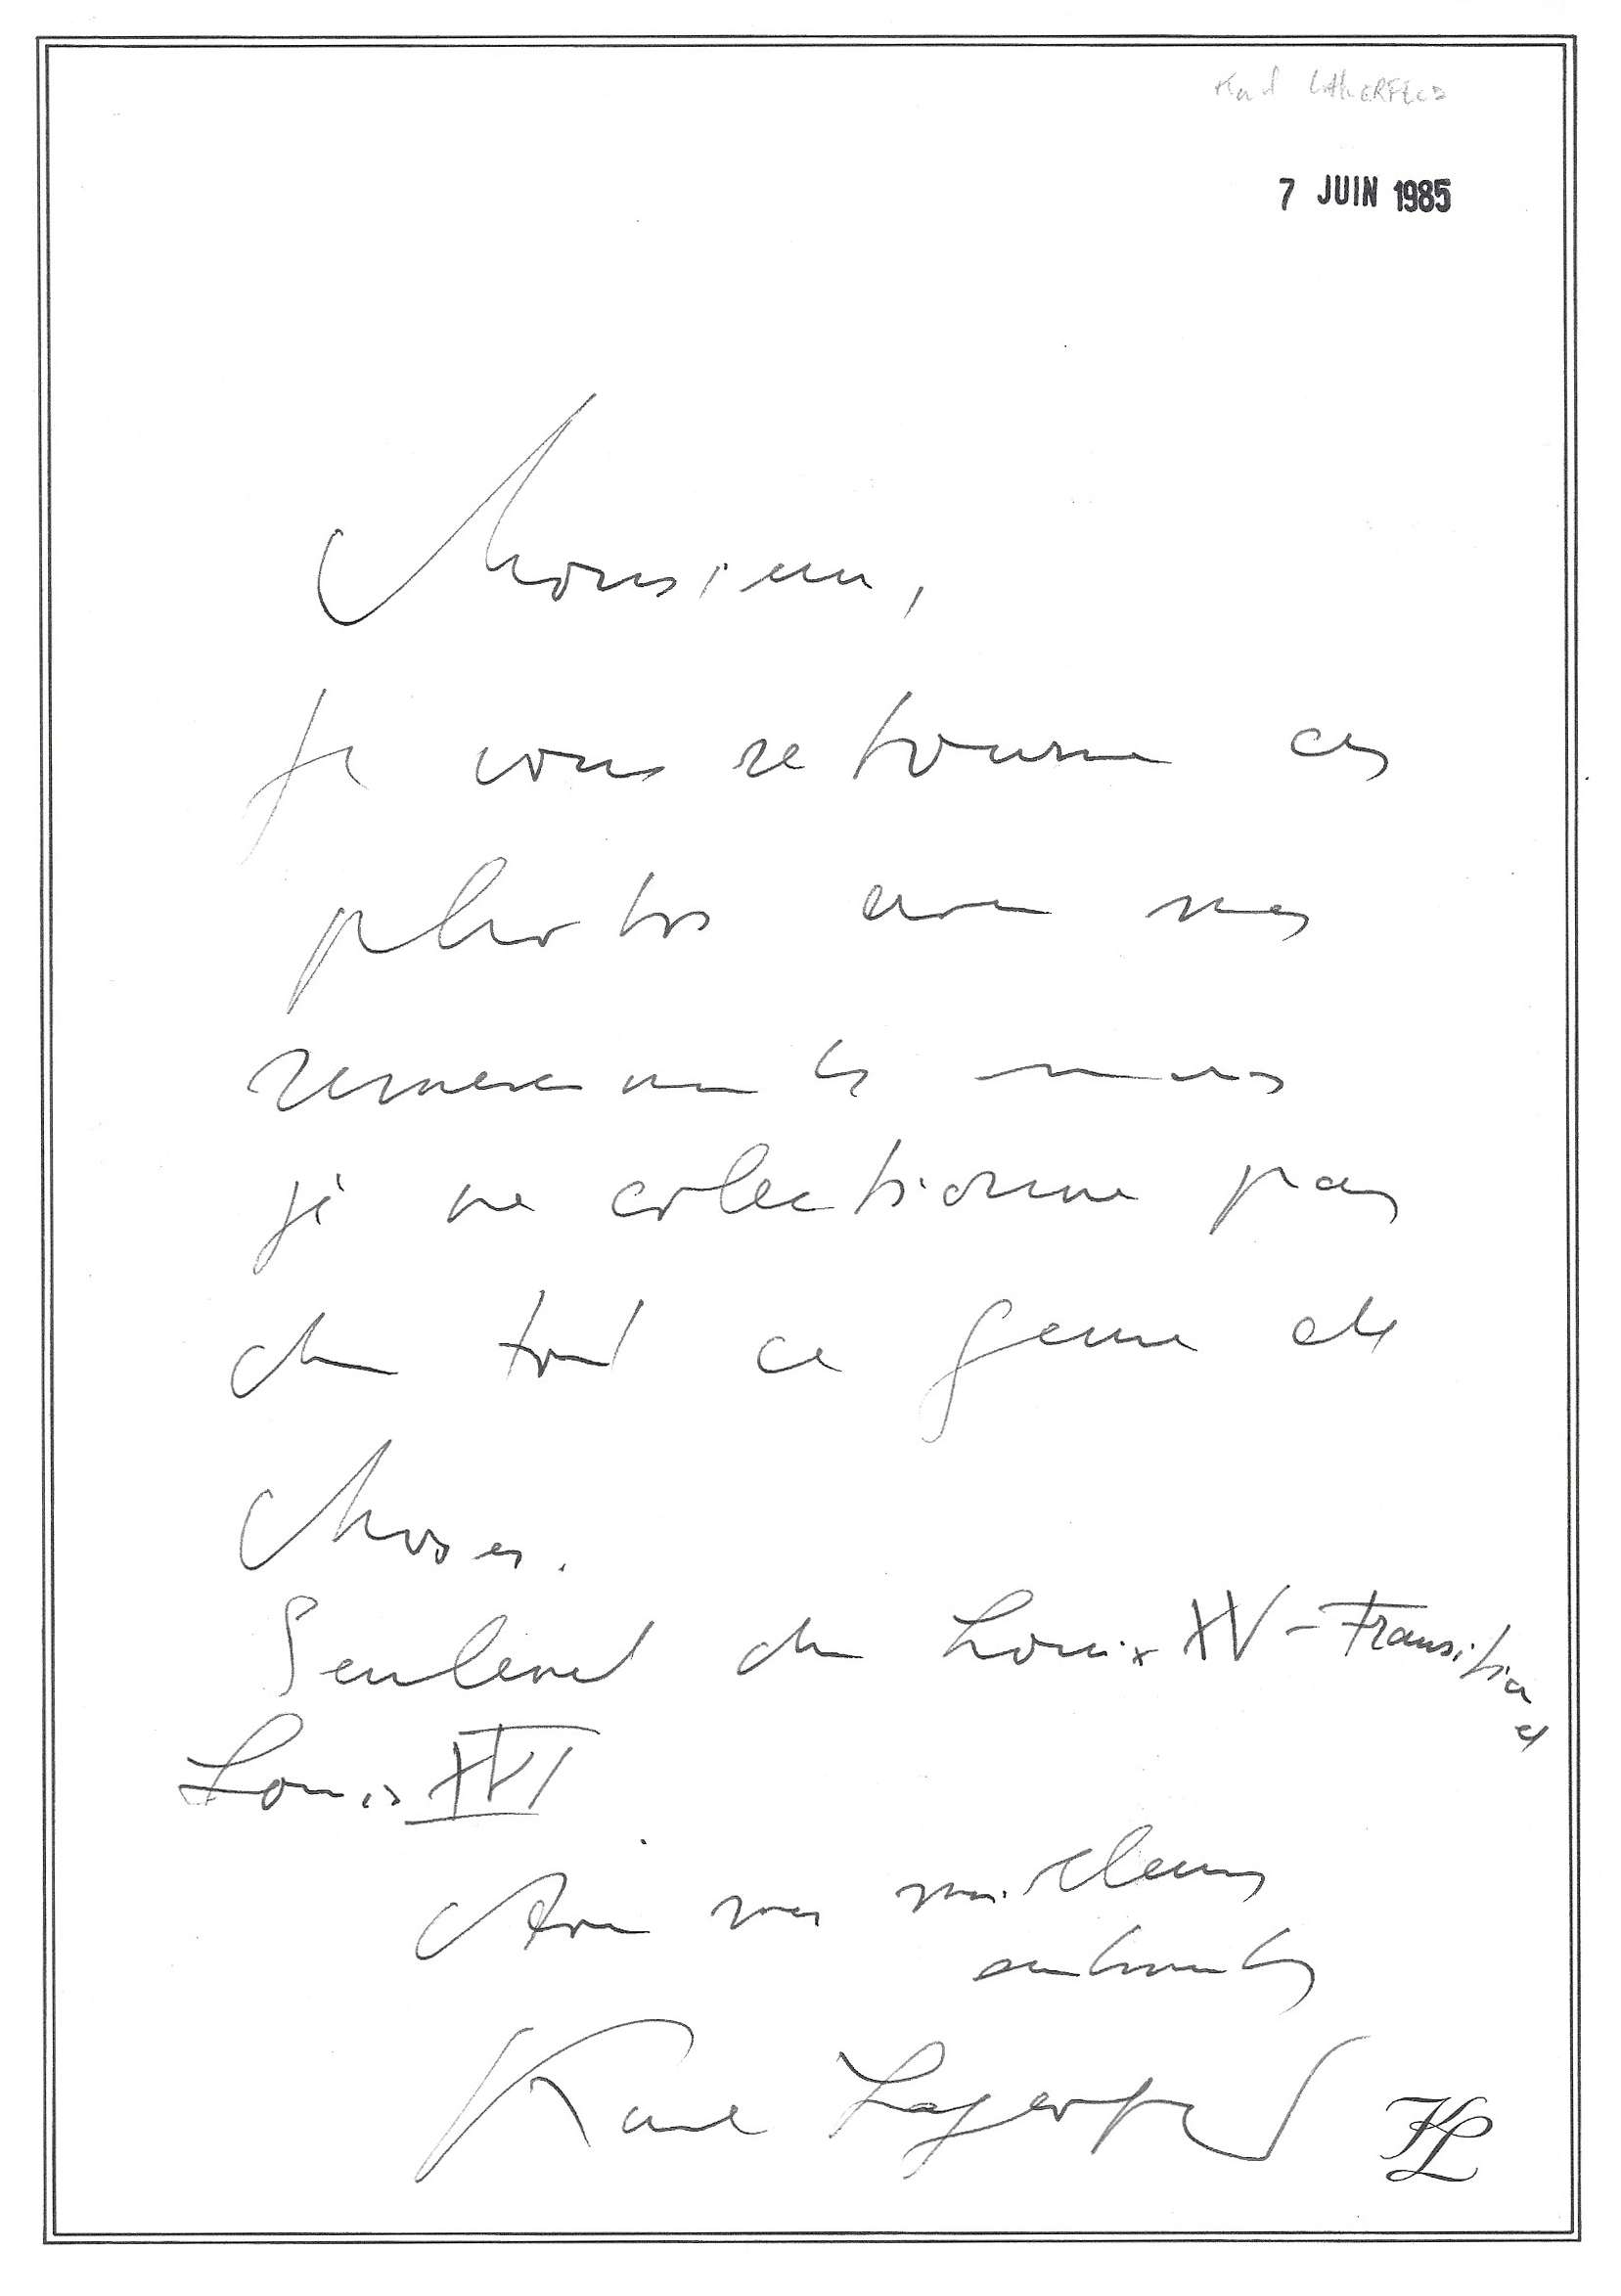 Karl LAGERFELD
7 JUIN 1985
Monsieur,
Je vous retourne ces
photos avec mes
remerciements mais
je ne colectionne pas
du tout ce genre de
choses.
Seulement du Louis XV - Transition
et
Louis XVI
Avec mes meilleurs
sentiments
Karl Lagerfeld
KL